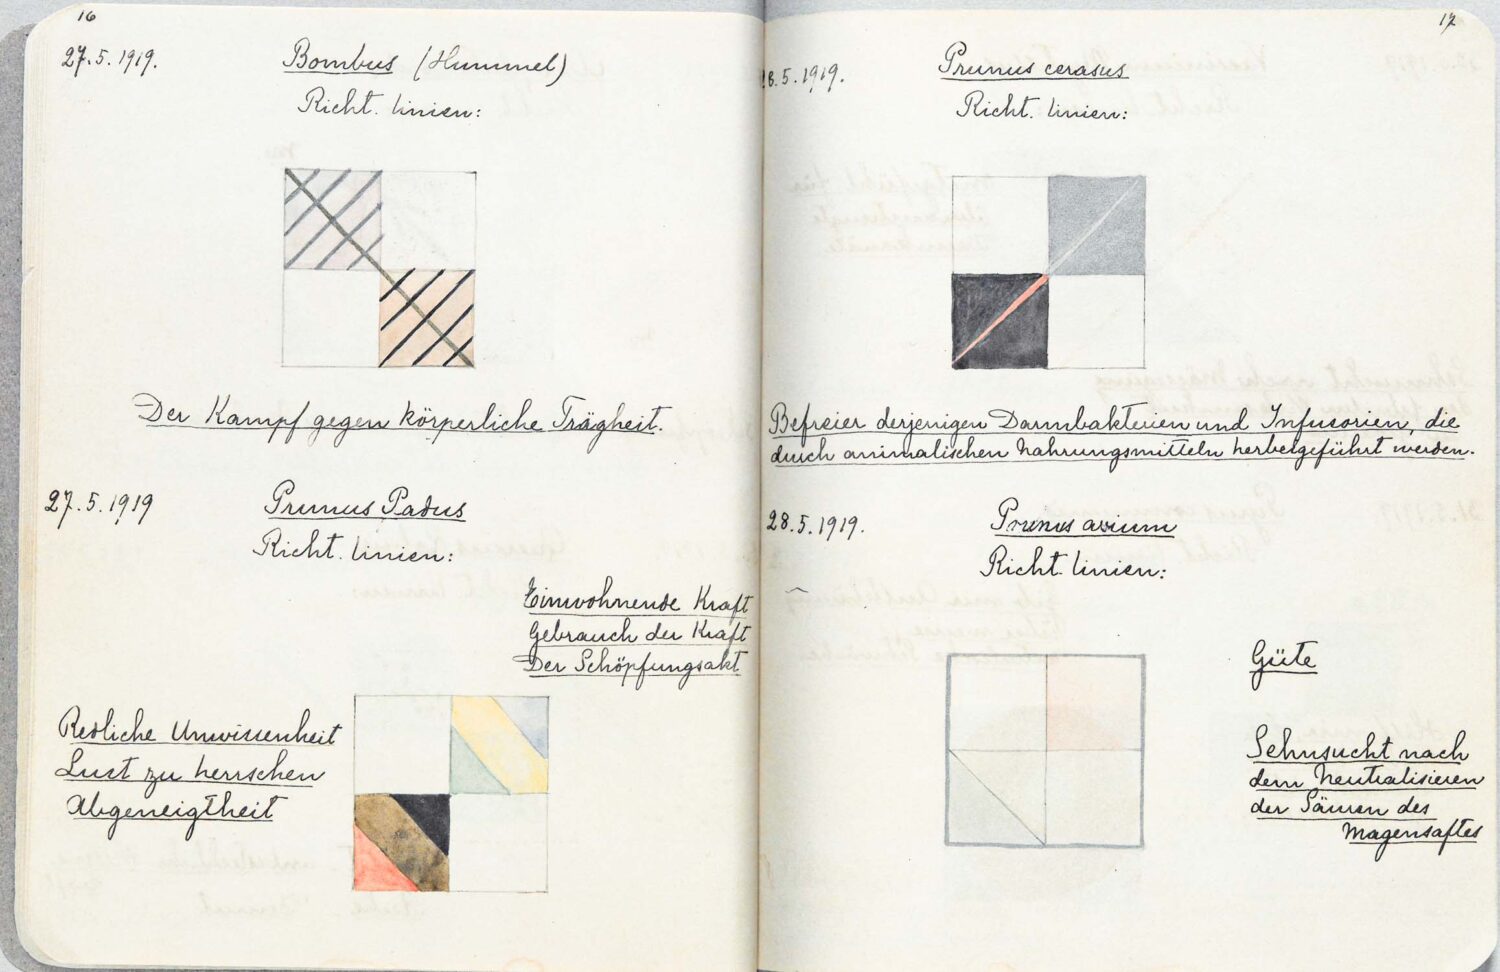 16
27.5.1919.
Bombus (Hummel)
Richt. linien:
Der Kampf gegen körperliche Trägheit.
27.5.1919
Prunus Padus
Richt. linien:
Einwohnende Kraft
Gebrauch der Kraft
Der Schöpfungsakt
Redliche Unwissenheit
Lust zu herrschen
Abgeneigtheit
17
28.5.1919.
Prunus cerasus
Richt. linien:
Befreier derjenigen Darmbakterien und Infusorien, die
durch animalischen Nahrungsmitteln herbeigeführt werden.
28.5.1919.
Prunus avium
Richt. linien:
Güte
Sehnsucht nach
dem Neutralisieren
der Säuren des
Magensaftes